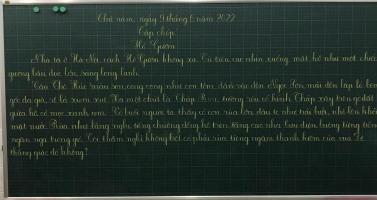 Thứ năm, ngày 9 tháng 6 năm 2022
Tập chép:
Hồ Gươm
Nhà tôi ở Hà Nội, cách Hồ Gươm không xa. Từ trên cao nhìn xuống, mặt hồ như một chiếc
gương bầu dục lớn, sáng long lanh.
Cầu Thê Húc màu son, cong cong như con tôm, dẫn vào đền Ngọc Sơn, mái đền lấp ló bên
gốc đa già, rễ lá xum xuê. Xa một chút là Tháp Rùa, tường rêu cổ kính. Tháp xây trên gò đất
giữa hồ, cỏ mọc xanh um. Có buổi người ta thấy có con rùa lớn, đầu to như trái bưởi, nhô lên khỏi
mặt nước. Rùa như lắng nghe tiếng chuông đồng hồ trên tầng cao nhà bưu điện, buông từng tiếng
ngân nga trong gió. Tôi thầm nghĩ không biết có phải rùa từng ngậm thanh kiếm của vua Lê
thắng giặc đó không?